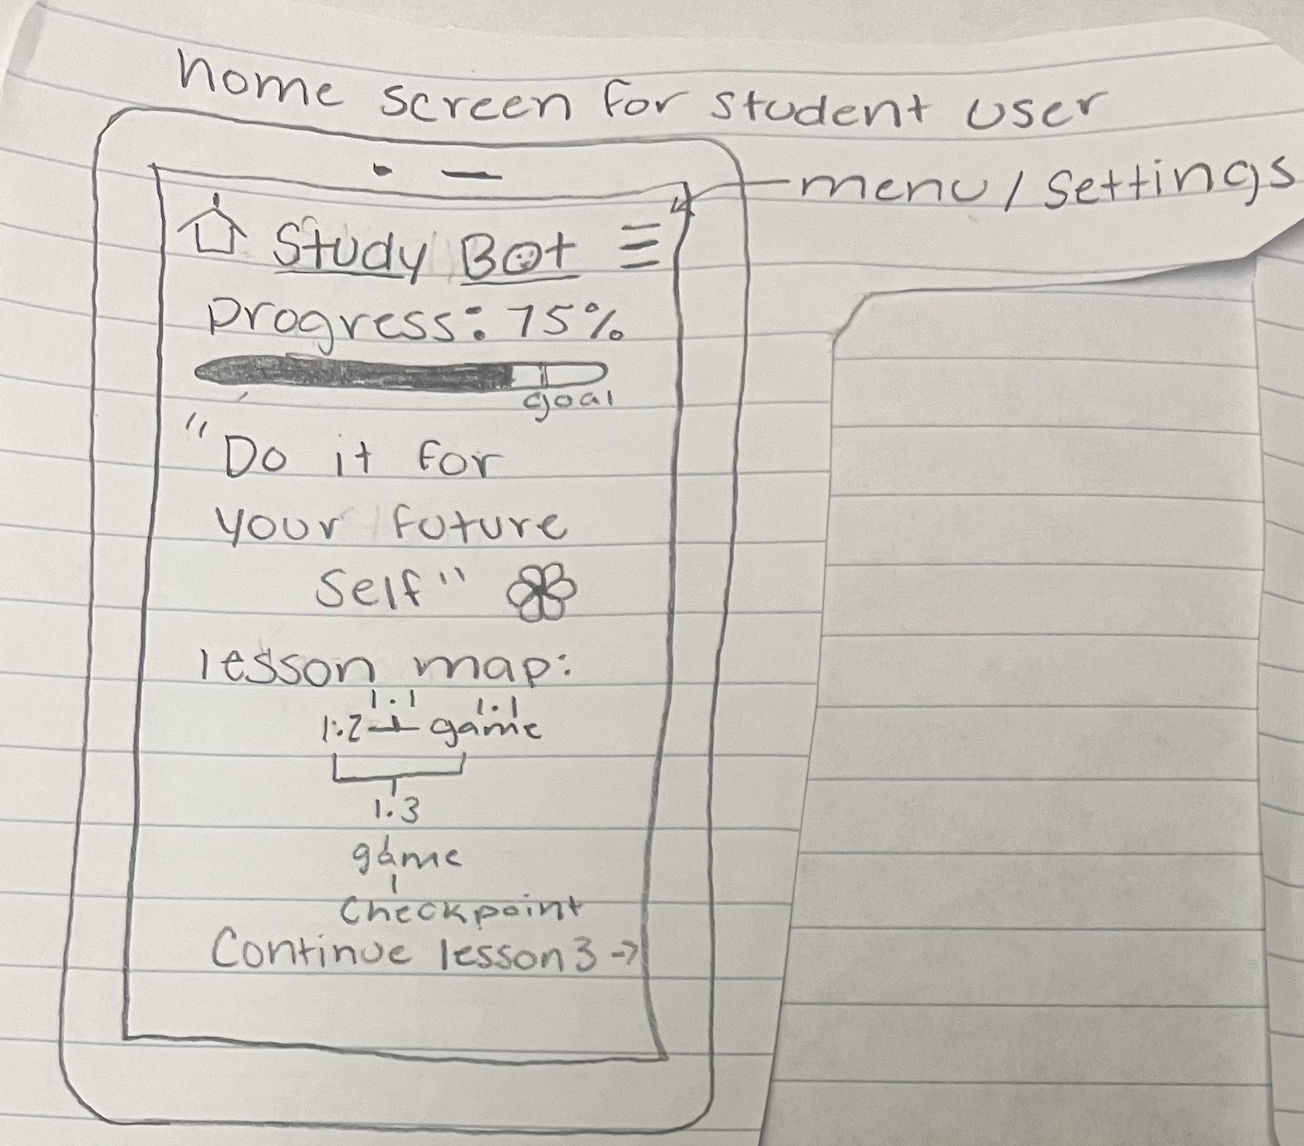 home screen for student user
menu / settings
Study Bot
Progress: 75%
goal
"Do it for
your future
self"
lesson map:
1.1 1.1
1.2 game
1.3
game
Checkpoint
Continue lesson 3 →